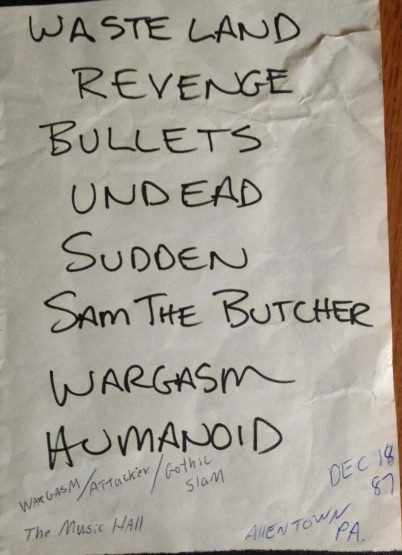 WASTE LAND
REVENGE
BULLETS
UNDEAD
SUDDEN
SAM THE BUTCHER
WARGASM
HUMANOID
WARGASM/ATTACKER/Gothic
Slam
The Music HAll
DEC 18
87
AllENTOWN
PA.